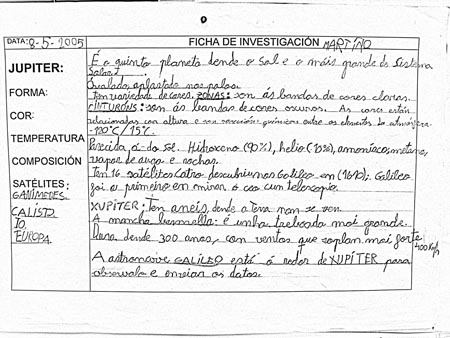 DATA: 8-5-2005 FICHA DE INVESTIGACIÓN MARTIÑO
JUPITER: É o quinto planeta dende o Sol e o máis grande do Sistema
Solar.
FORMA: Ovalado, aplastado nos polos.
Ten variedade de cores. ZONAS: son ás bandas de cores claras.
COR: CINTURÓNS: son ás bandas de cores oscuros. As cores están
relacionadas con altura e as reaccións químicas entre os elementos. La atmósfera
TEMPERATURA -120°C / 15°C.
COMPOSICIÓN Parecida á do Sol. Hidróxeno (90%), helio (10%), amoníaco, metano,
vapor de auga e rochas.
SATÉLITES: Ten 16 satélites. Catro descubriunos Galileo en (1610). Galileo
GANÍMEDES foi o primeiro en mirar o ceo cun telescopio.
CALISTO XUPÍTER: Ten aneis, dende a Terra non se ven.
IO A mancha vermella: é unha treboada moi grande.
EUROPA. Dura dende 300 anos, con ventos que soplan moi forte 400 Km/h
A astronave GALILEO está ó redor de XUPÍTER para
observalo e enviar os datos.